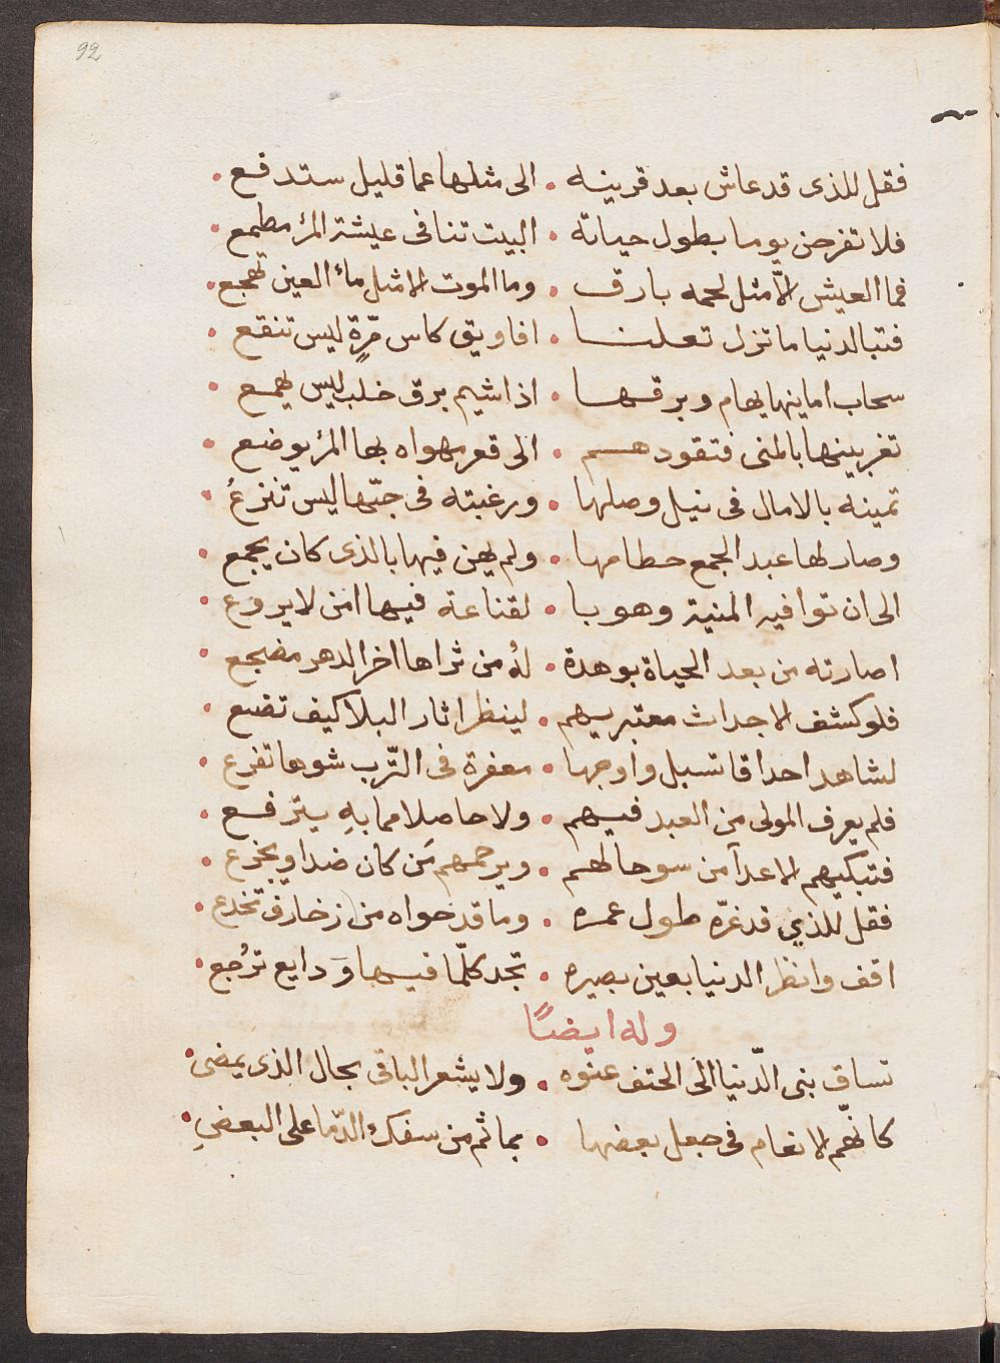 92
فقل للذى قد عاش بعد قرينه • الى مثلها عما قليل ستدفع •
فلا تفرحن يوما بطول حياتة • البيت تنافى عيشة المرُ مطمع •
فما العيش الّا مثل لحمه بارق • وما الموت الا مثل ماء العين تهجع •
فتبا لدنيا ما تزل تعلنا • افاويق كاس مرّةٍ ليس تنقع •
سحاب امانيها يهام وبرقها • اذا شيم برق خلب ليس يهمع •
تغر بينها بالمنى فتقودهم • الى قعر مهواه بها المرُ يوضع •
تمينه بالامال فى نيل وصلها • ورغبته فى حبّها ليس تنزعُ •
وصار لها عبد الجمع حطامها • ولم يهن فيها بالذى كان يجمع •
الى ان توافيه المنية وهو با • لقناعة فيها امن لا يروع •
اصارته من بعد الحياة بوهدة • لهُ من ثراها اخر الدهر مضجع •
فلو كشف الاجداث معتبريهم • لينظر اثار البلا كيف تضع •
لشاهد احداقا تسبل واوجها • معفرة فى التّرب شوها تفزع •
فلم يعرف المولى من العبد فيهم • ولا حاصلا مما بهِ يترفع •
فتبكيهم الاعدآ من سوحالهم • ويرحمهم مَن كان ضدا ويجزع •
فقل للّذي قد غرّه طول عمره • وما قد حواه من زخارف تخدع •
اقف وانظر الدنيا بعين بصيره • تجد كلّما فيها وَدايع ترُجع •
وله ايضًا
تساق بنى الدّنيا الى الحتف عنوه • ولا يشعر الباقى بحال الذى يمضى •
كانّهم الانعام فى جهل بعضها • بما ثم من سفك الدّما على البعضِ •